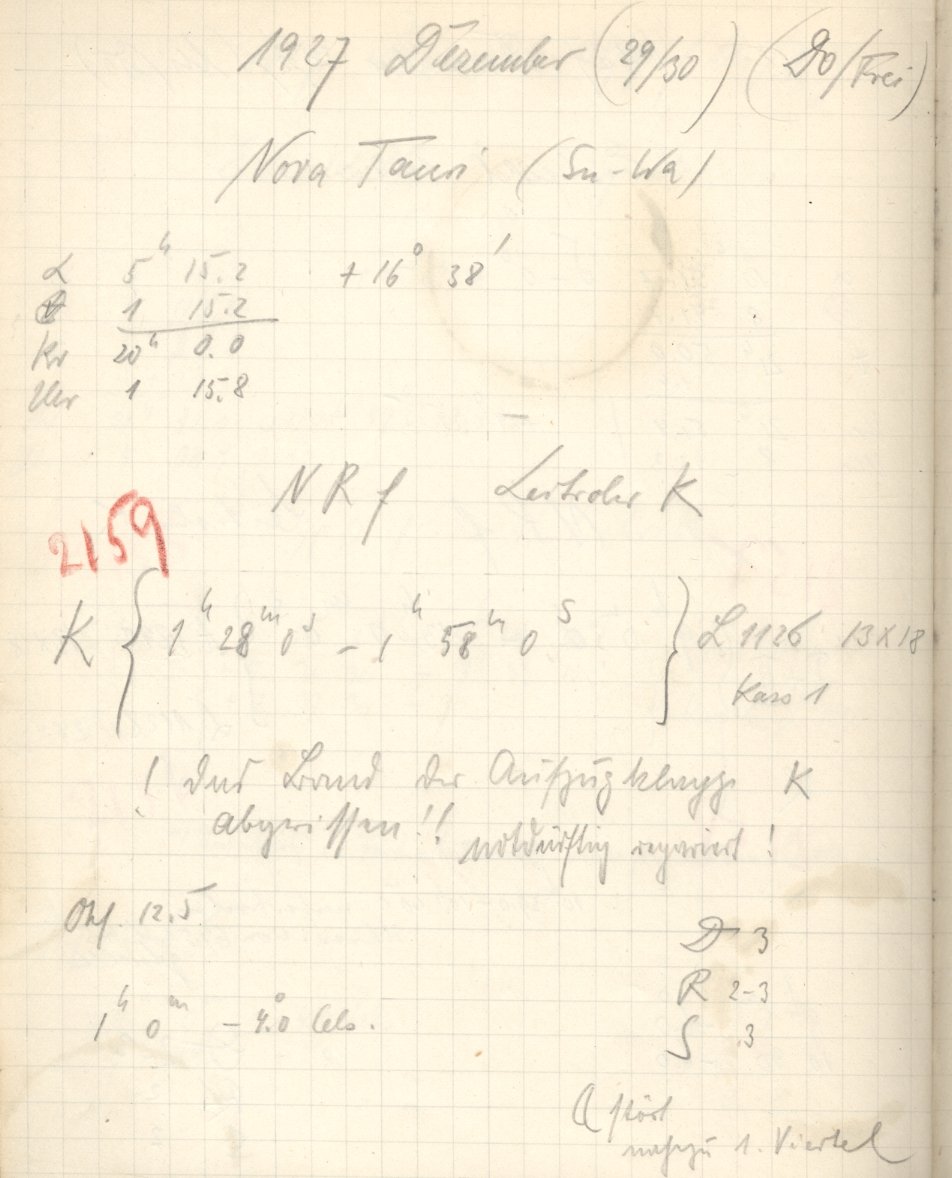 1927 Dezember (29/30) (Do/Frei)
Nova Tauri (Su-Wa)
α 5h 15.2 + 16° 38'
1 15.2
Kr 20h 0.0
Uhr 1 15.8
N R f Leitrohr K
2159
K { 1h 28m 0s - 1h 58m 0s } L 1126 13x18
Kass 1
! Das Band der Aufzugklappe K
abgerissen!! notdürftig repariert!
Obj. 12.5
D 3
R 2-3
1h 0m - 4.0° Cels.
S 3
☾ stört
nahezu 1. Viertel